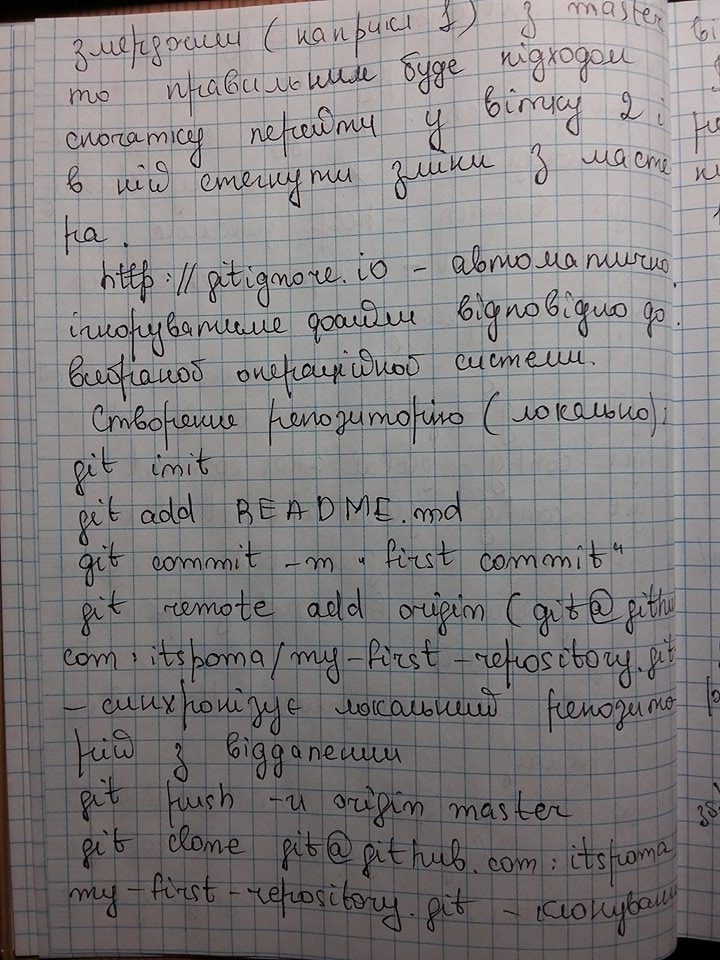 змерджили (наприкл 1) з master
то правильним буде підходом
спочатку перейти у вітку 2 і
в ній стягнути зміни з масте
ра.
http://gitignore.io - автоматично
ігноруватиме файли відповідно до
вибраної операційної системи.
Створення репозиторію (локально):
git init
git add README.md
git commit -m "first commit"
git remote add origin (git@githu
com:itspoma/my-first-repository.git
- синхронізує локальний репозито
рій з віддаленим
git push -u origin master
git clone git@github.com:itspoma
my-first-repository.git - клонувати